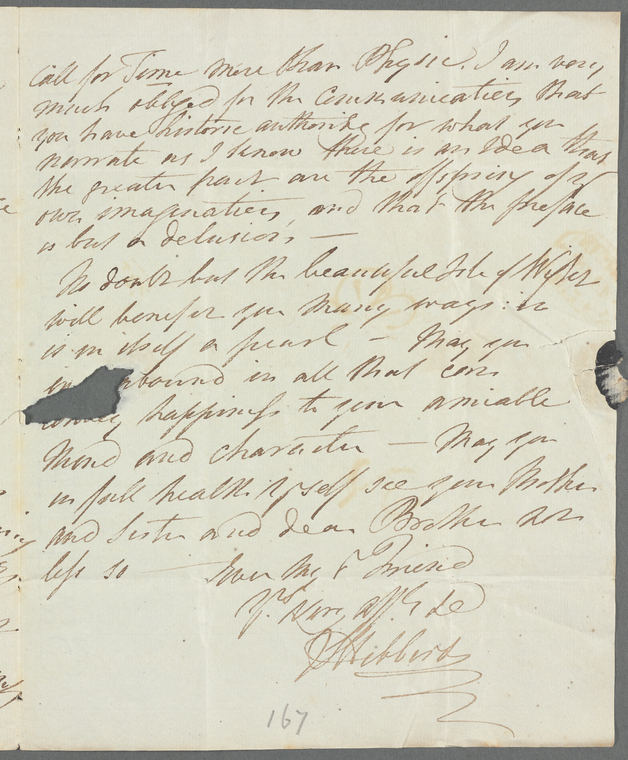 call for Time more than Physic. I am very
much obliged for the Communication that
you have historic authority for what you
narrate as I know there is an Idea that
the greater part are the offspring of yr
own imagination, and that the preface
is but a delusion —
No doubt but the beautiful Isle of Wight
will benefit you many ways: it
is in itself a pearl — May you
abound in all that can
convey happiness to your amiable
Mind and character — May you
in full health yrself see your Mother
and Sister and dear Brother not
less so — Ever My Friend
Yrs very affly
167